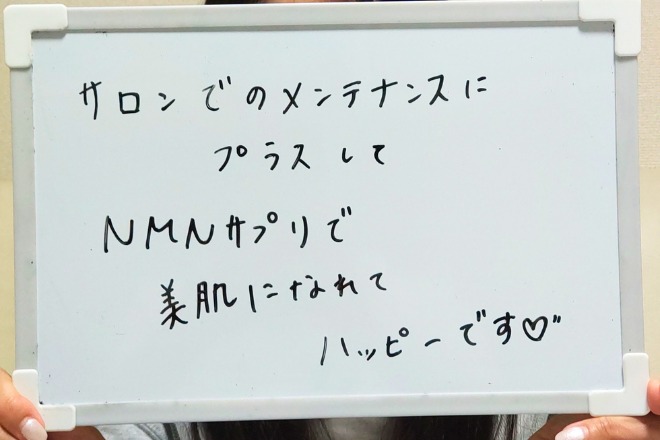 サロンでのメンテナンスに
プラスして
NMNサプリで
美肌になれて
ハッピーです♡"